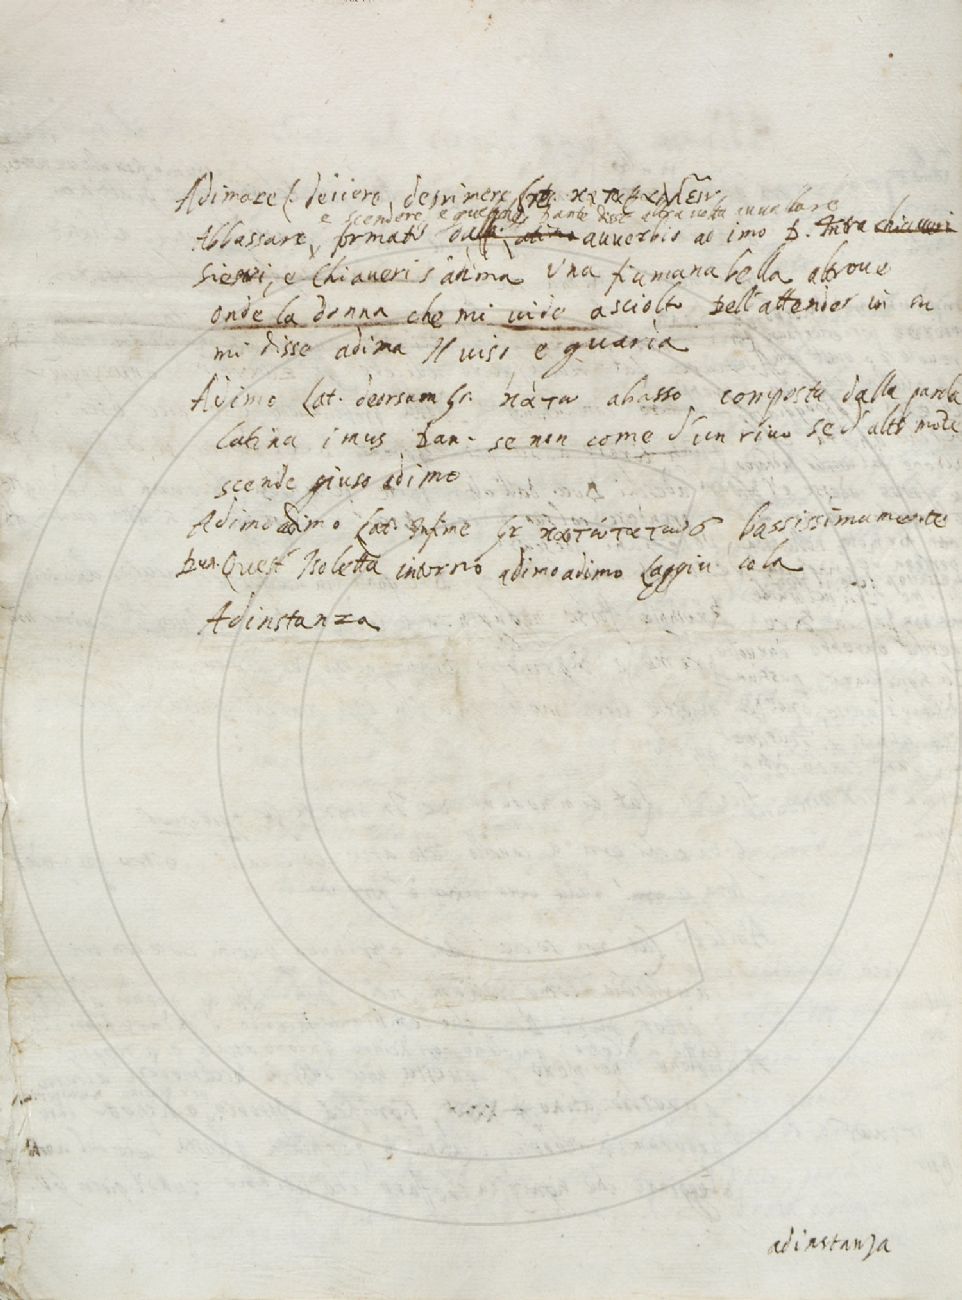 Adimare L. deiicere, deprimere Gr. καταβαλεῖν
e scendere e quello Dante disse altra volta avvalare
Abbassare, formato dall' avverbio ad imo D. Intra chiaveri
Siestri, e Chiaveri s'adima Una fiumana bella altrove
onde la donna che mi vide asciolto Dell'attender in su
mi disse adima Il viso, e guarda
Adimo Lat. deorsum Gr. κάτω abasso, composta dalla parola
latina imus Dan. se non come d'un rivo se d'alto monte
scende giuso adimo
Adimo adimo Lat. Infime Gr. κατώτατως bassissimamente
Dan. Quest'Isoletta intorno adimo adimo Laggiu cola
Adinstanza
adinstanza